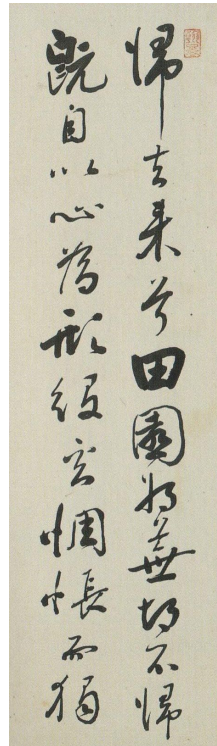 帰去来兮田園将蕪胡不帰
既自以心為形役奚惆悵而獨